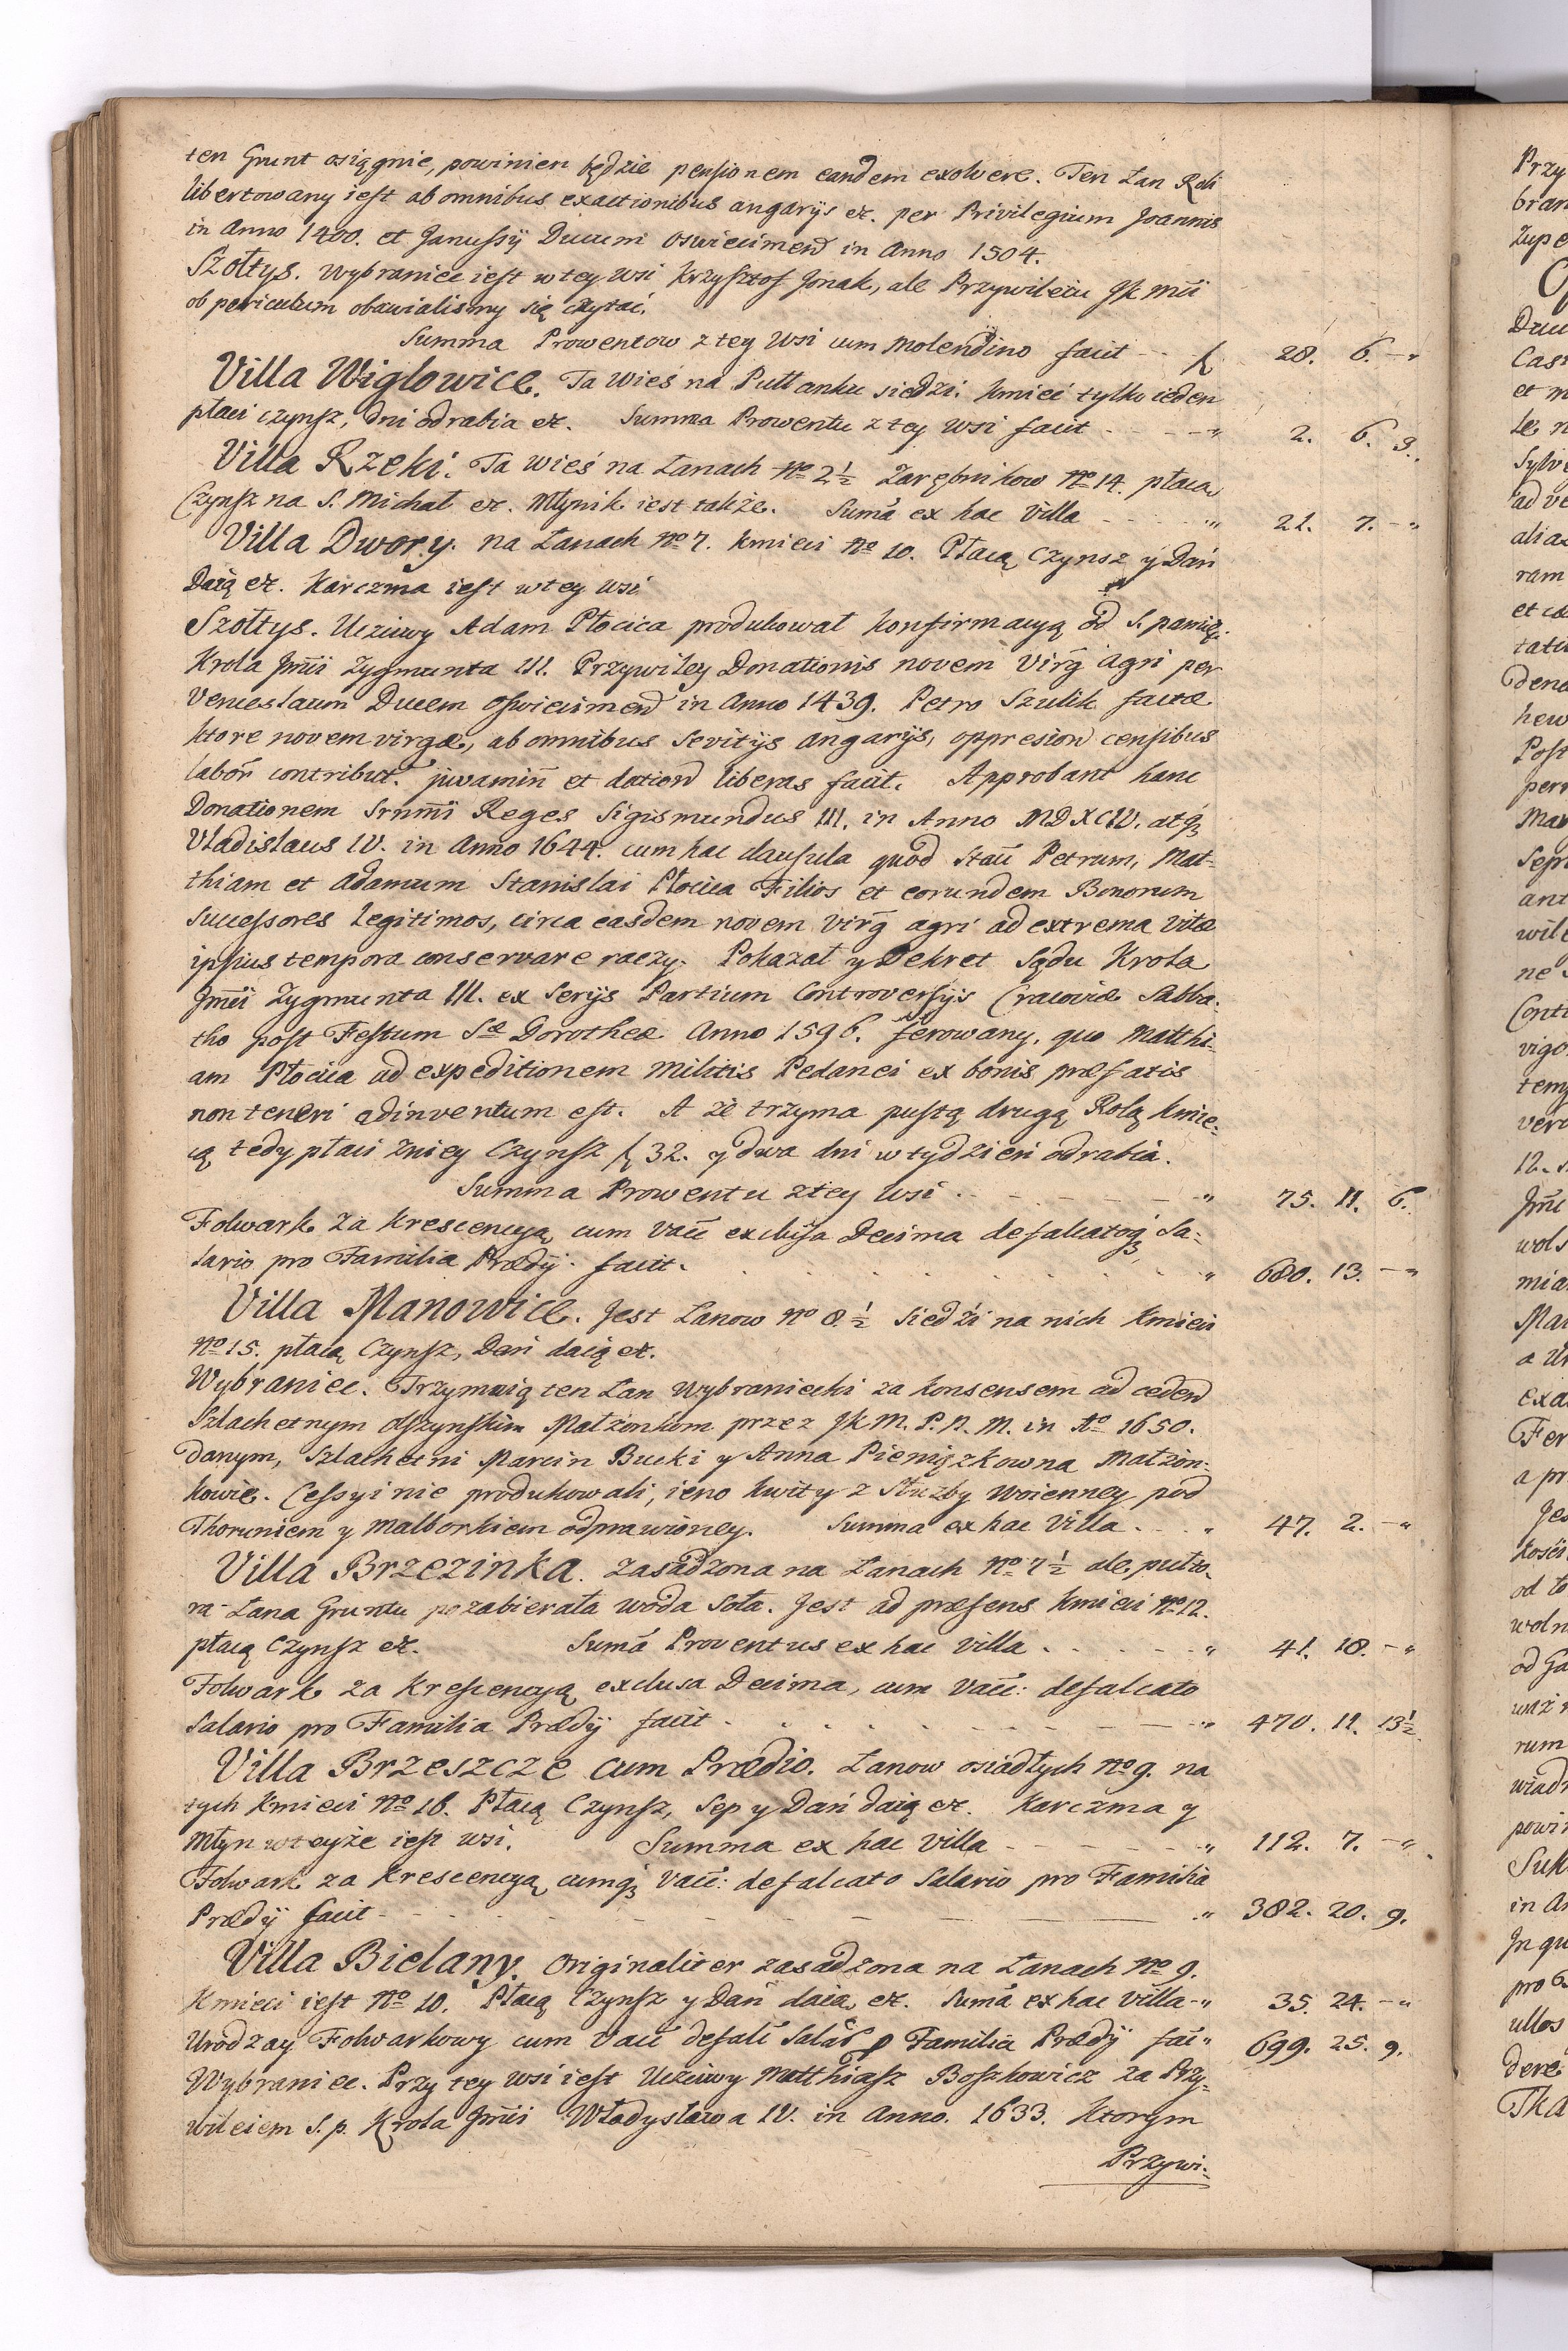 ten Grunt osiągnie, powinien będzie pensionem eandem exolvere. Ten Łan Roli
libertowany iest ab omnibus exactionibus angarijs etc. per Privilegium Joannis
in Anno 1400. et Janussÿ Ducum Oswiecimen in Anno 1504.
Szołtys. Wybraniec iest w tey wsi Krzysztof Jonak, ale Przywileiu JK Mci
ob periculum obawialismy się czytać.
Summa Prowentow z tey Wsi cum Molendino facit - - f 28. 6. - "
Villa Wiglowice. Ta Wieś na Pułłanku siedzi. Kmieć tylko ieden
płaci czynsz, dni odrabia etc. Summa Prowentu z tey Wsi facit - - - " 2. 6. 9.
Villa Rzeki. Ta Wieś na Łanach No 2½ Zarębnikow No 14. płacą
Czynsz na S. Michał etc. Młynik iest także. Suma ex hac Villa - - - " 21. 7. - "
Villa Dwory. na Łanach No 7. Kmieci No 10. Płacą Czynsz y Dań
Daią etc. Karczma iest w tey wsi
Szołtys. Uczciwy Adam Płocica produkował konfirmacyą od S. pamięc.
Krola Jmci Zygmunta III. Przywiley Donationis novem Virg agri per
Venceslaum Ducem Oswiecimen in Anno 1439. Petro Szulik factæ
ktore novem virgæ, ab omnibus Sevitijs angarijs, oppresion censibus
labor contribut. juvamin et dation liberas facit. Approbant hanc
Donationem Srnmi Reges Sigismundus III. in Anno MDXCIV. atq
Vladislaus IV. in Anno 1644. cum hac clausula quod Stan Petrum, Mat-
thiam et Adamum Stanislai Płocica Filios et eorundem Bonorum
Successores Legitimos, circa easdem novem Virg agri ad extrema vitæ
ipsius tempora conservare raczy. Pokazał y Dekret Sądu Krola
Jmci Zygmunta III. ex Serijs Partium Controversÿs Cracoviæ Sabba-
tho post Festum Sæ Dorotheæ Anno 1596. ferowany, quo Matthi-
am Płocica ad expeditionem Militis Pedanei ex bonis præfatis
non teneri adinventum est. A że trzyma pustą drugą Rolą kmie-
cą tedy płaci z niey Czynsz f 32. y dwa dni w tydzień odrabia.
Summa Prowentu z tey Wsi - - - " 75. 11. 6.
Folwark za Krescencyą cum Vacc exclusa Decima defalcatoq Sa-
lario pro Familia Prædÿ facit. - - - " 680. 13. - "
Villa Manowice. Jest Łanow No 8.½ Siedzi na nich Kmieci
No 15. płacą Czynsz, Dań daią etc.
Wybraniec. Trzymaią ten Łan Wybraniecki za konsensem ad ceden
Szlachetnym Olszynskim Małżonkom przez JK M. P. N. M. in Ao 1650.
danym, Szlachetni Marcin Bucki y Anna Pieniązkowna Małżon-
kowie. Cessyi nie produkowali, ieno kwity z Służby Woienney pod
Thoruniem y Malborkiem odprawioney. Summa ex hac Villa - - " 47. 2. - "
Villa Brzezinka. Zasadzona na Łanach No 7½ ale pułto-
ra Łana Gruntu pozabierała woda Soła. Jest ad præsens Kmieci No 12.
płacą Czynsz etc. Suma Proventus ex hac Villa - - - " 41. 18. - "
Folwark za Krescencyą exclusa Decima, cum Vacc: defalcato
Salario pro Familia Prædÿ facit - - - " 470. 11. 13½
Villa Brzeszcze cum Prædio. Łanow osiadłych No 9. na
tych Kmieci No 18. Płacą Czynsz, Sep y Dań daią etc. Karczma y
Młyn w teyże iest wsi. Summa ex hac Villa - - - " 112. 7. - "
Folwark za Krescencyą cumq Vacc: defalcato Salario pro Familia
Prædÿ facit - - - " 382. 20. 9.
Villa Bielany. Originaliter zasadzona na Łanach No 9.
Kmieci iest No 10. Płacą Czynsz y Dań daia etc. Suma ex hac Villa - " 35. 24. - "
Urodzay Folwarkowy cum Vacc defalc Salar p Familia Prædÿ fac " 699. 25. 9.
Wybraniec. Przy tey wsi iest Uczciwy Matthiasz Boszkowicz za Przy-
wileiem S. p. Krola Jmci Władysława IV. in Anno. 1633. Ktorym
Przywi-